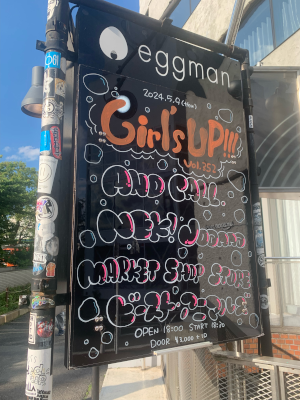 eggman
2024.5.9(thu)
Girl's UP!!!
vol.252
AND CALL
NEK!
MARKET SHOP STORE
OPEN 18:00 START 18:30
DOOR ¥3,000+1D